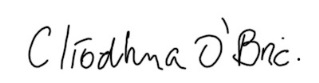 Clíodhna O'Bric.